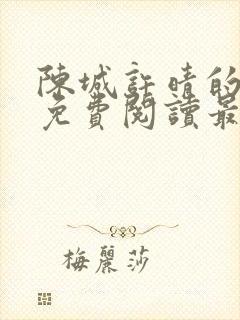 陳城許晴的
免費閱讀最
梅麗莎